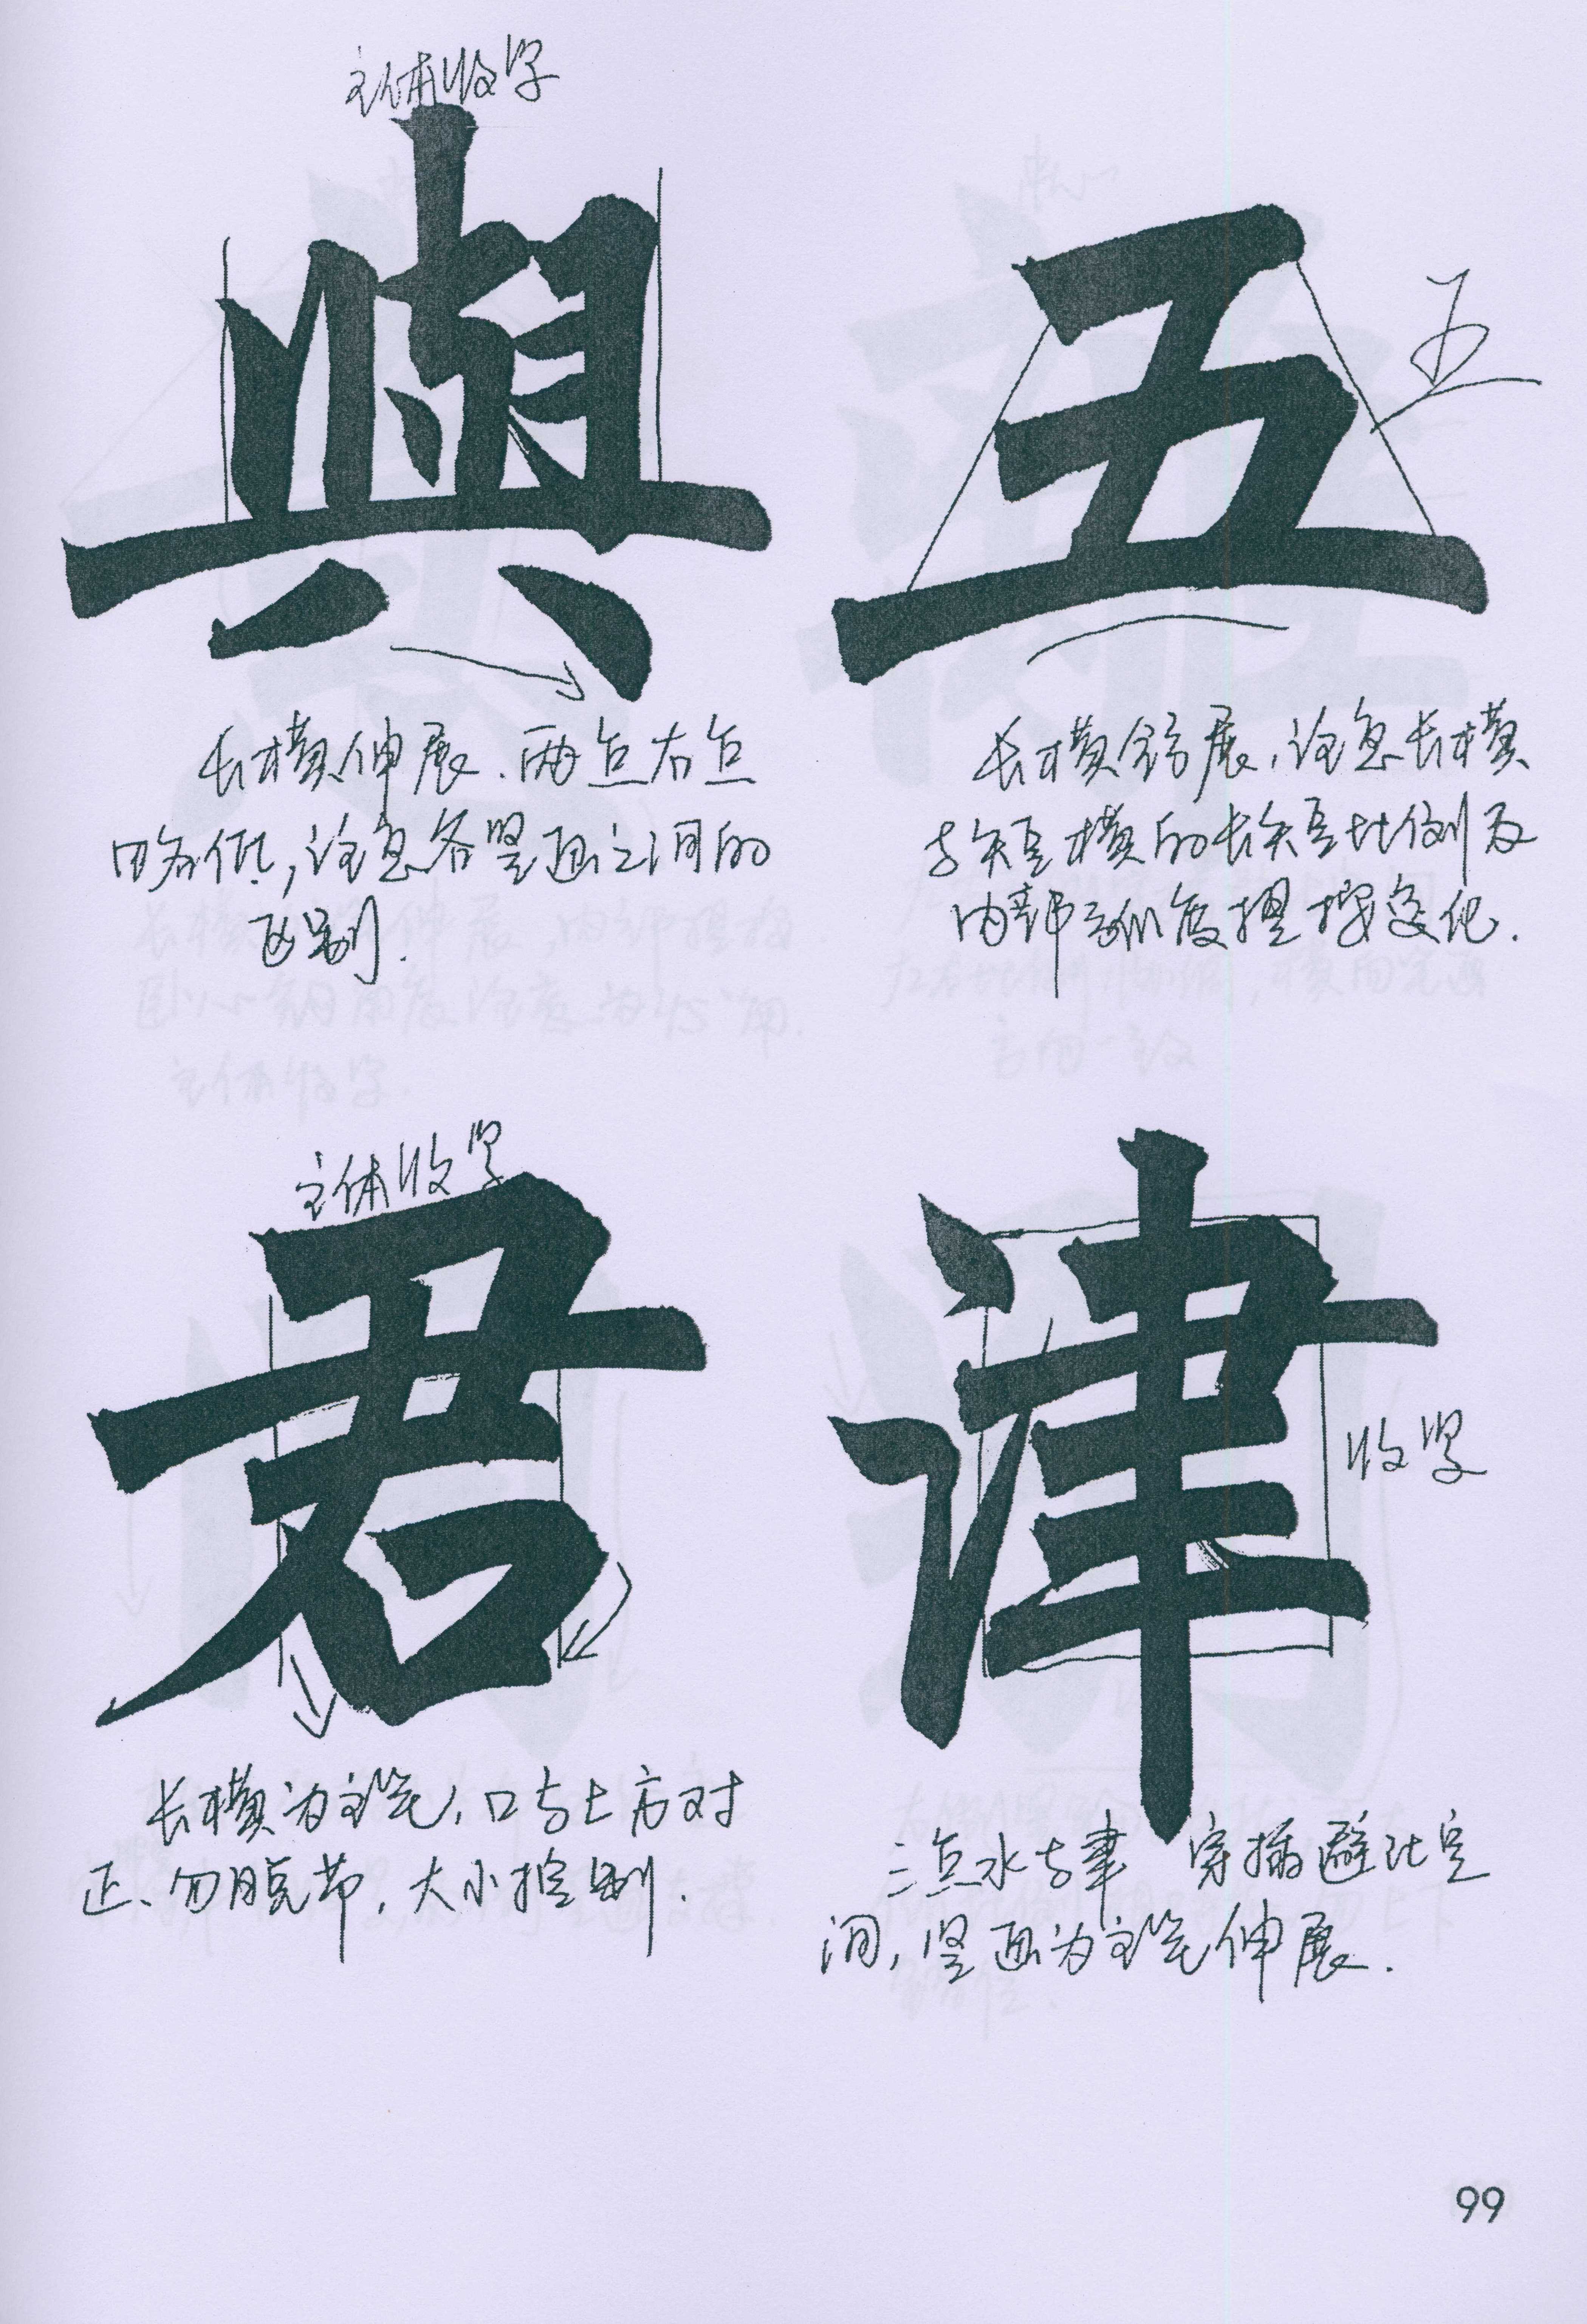 主体收紧
與
长横伸展.两点右点
略低,注意各竖画之间的
区别.
五
五
长横舒展,注意长横
与短横的长短比例及
内部角度摆接变化.
主体收紧
君
长横为主笔,口与上方对
正、勿脱节,大小控制.
津
收紧
三点水与聿 穿插避让空
间,竖画为主笔伸展.
99